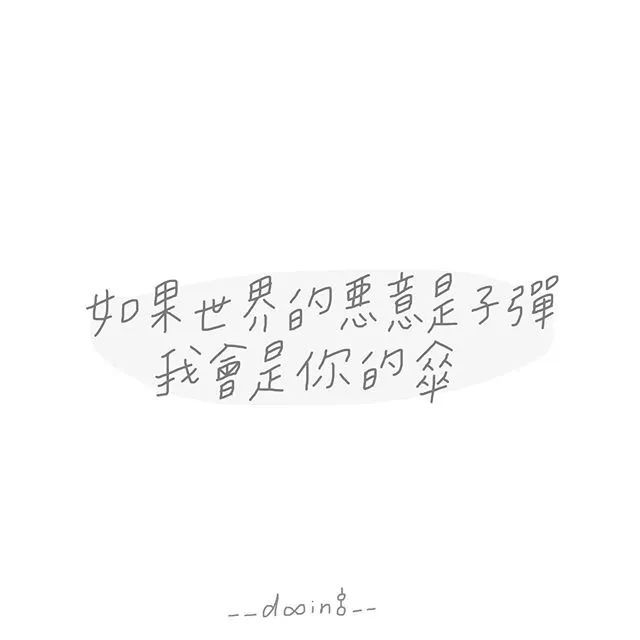 如果世界的悪意是子彈
我會是你的傘
__dooing__